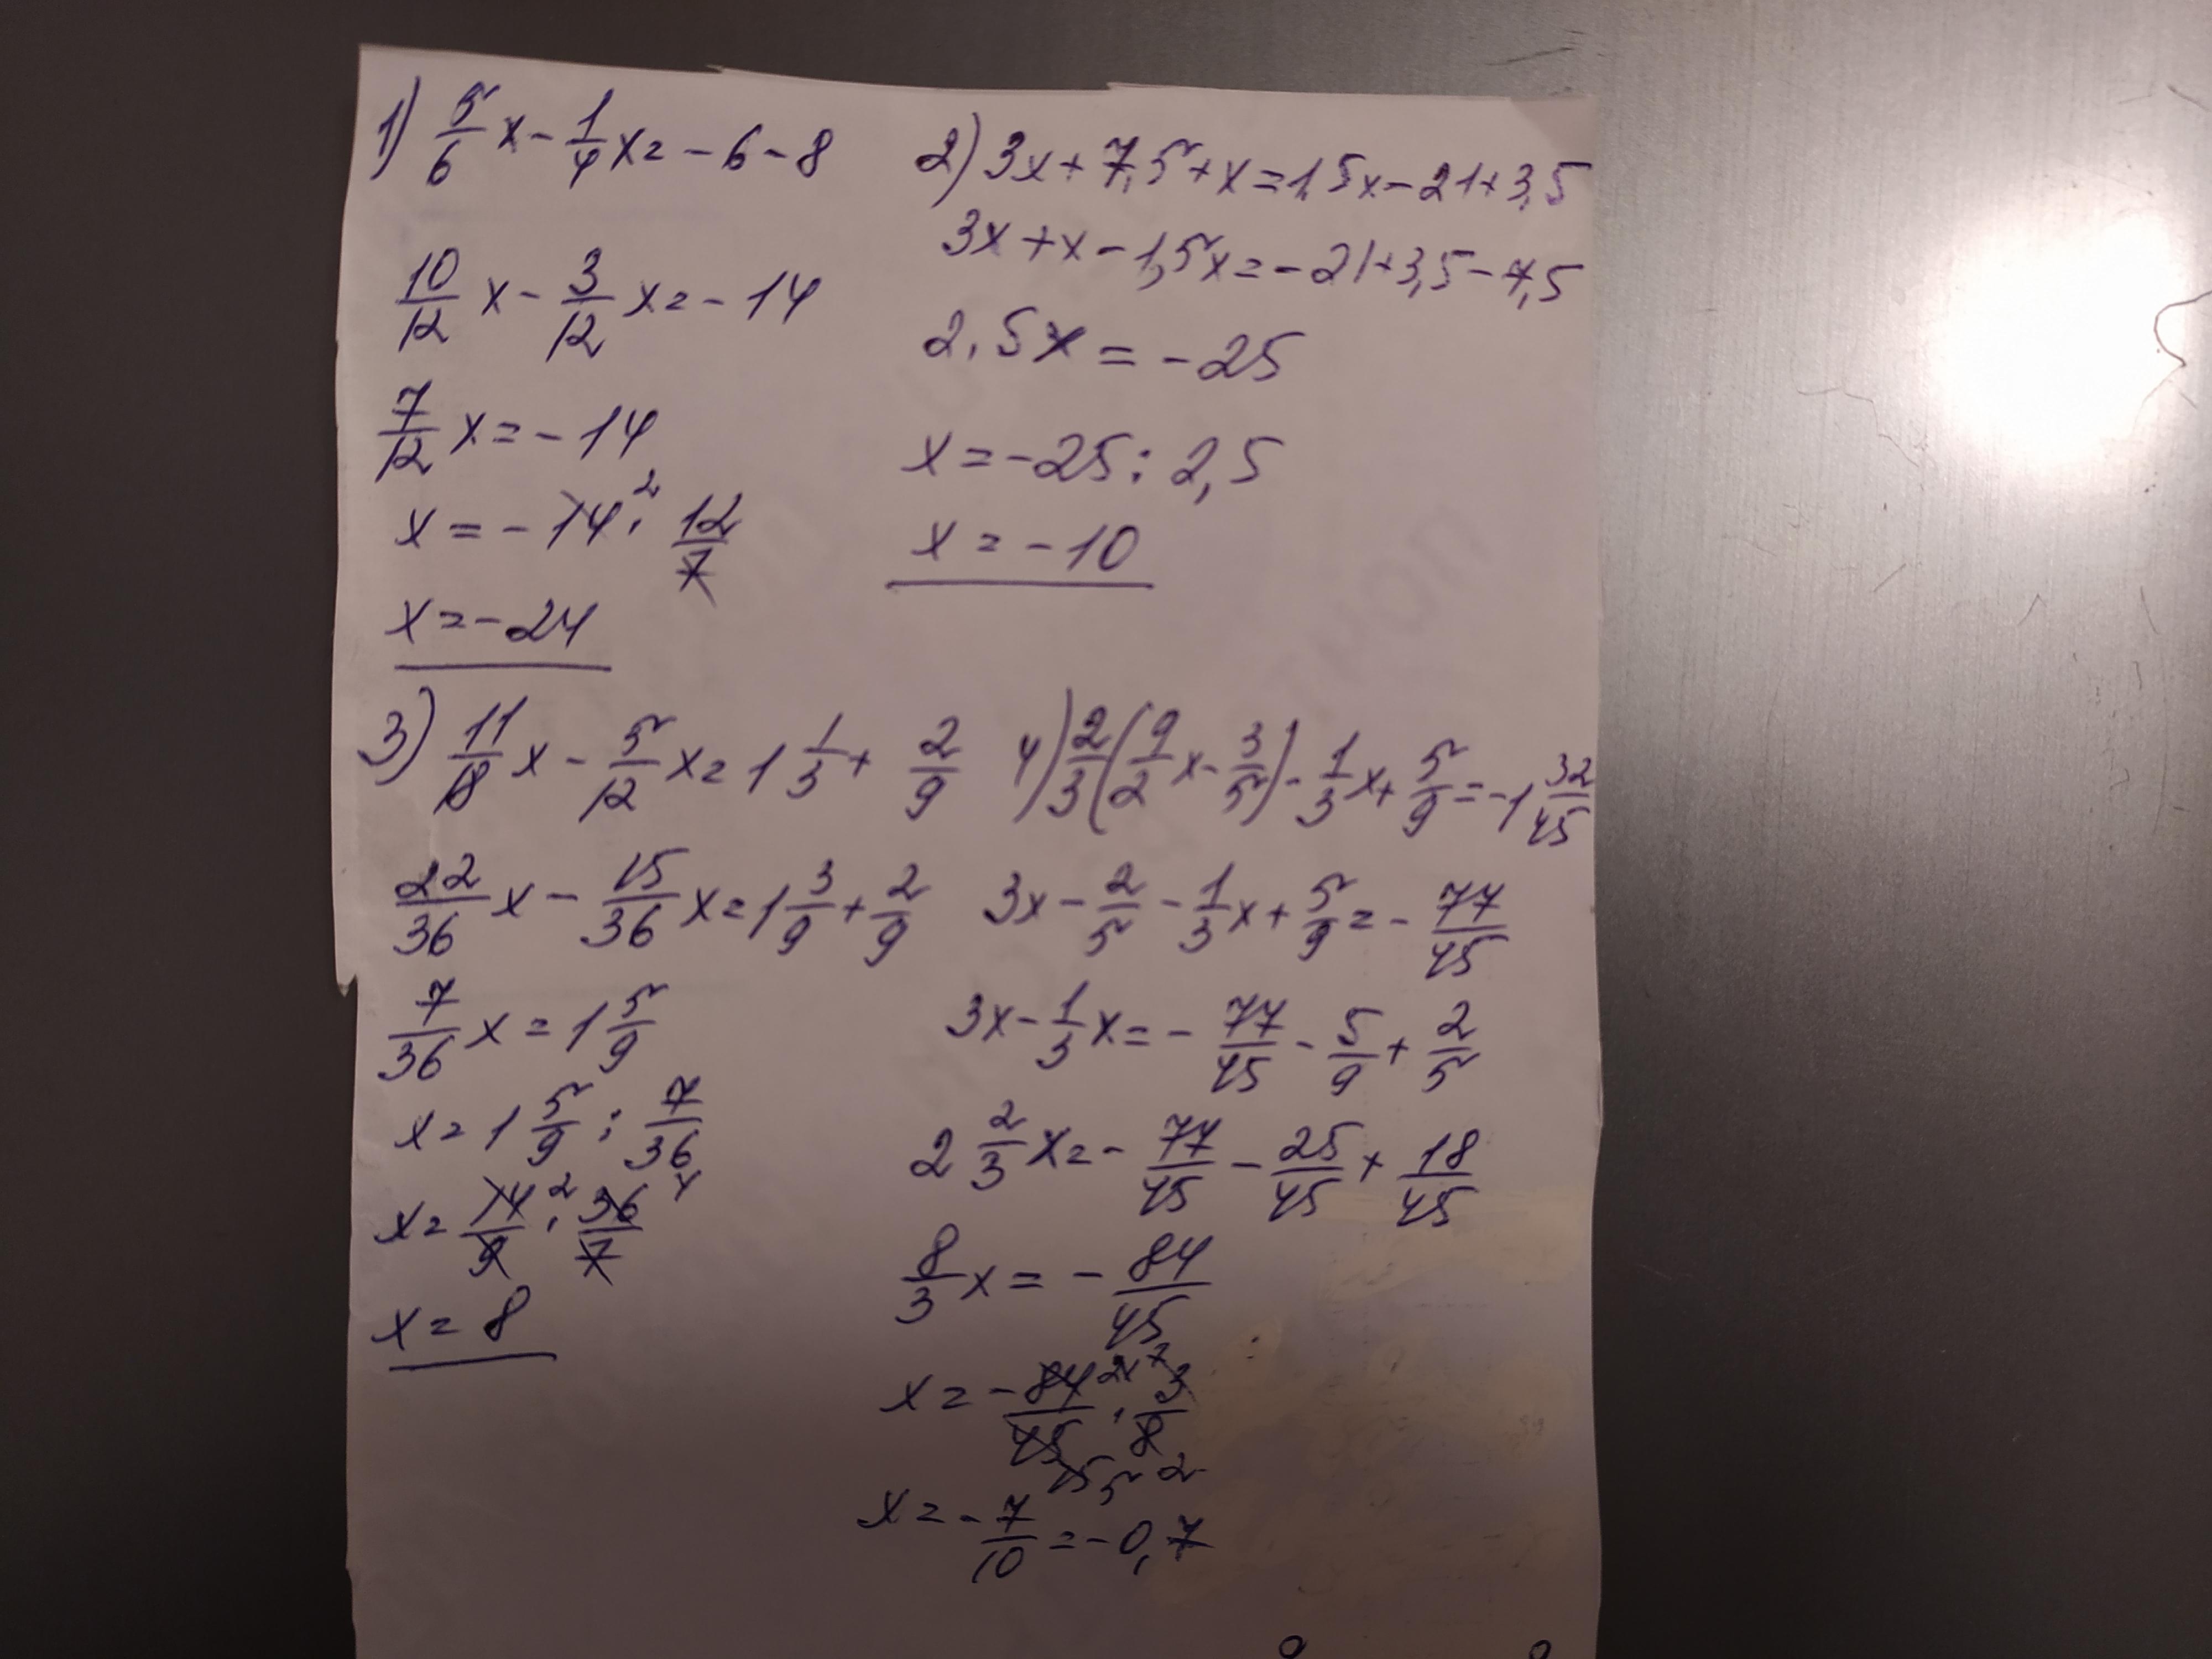 1) 5/6 x - 1/4 x = -6 - 8
10/12 x - 3/12 x = -14
7/12 x = -14
x = -14 2 · 12/7
x = -24
2) 3x + 7,5 + x = 1,5x - 21 + 3,5
3x + x - 1,5x = -21 + 3,5 - 7,5
2,5x = -25
x = -25 : 2,5
x = -10
3) 11/18 x - 5/12 x = 1 1/3 + 2/9
22/36 x - 15/36 x = 1 3/9 + 2/9
7/36 x = 1 5/9
x = 1 5/9 : 7/36
x = 14/9 2 · 36/7 4
x = 8
4) 2/3 (9/2 x - 3/5) - 1/3 x + 5/9 = -1 32/45
3x - 2/5 - 1/3 x + 5/9 = - 77/45
3x - 1/3 x = - 77/45 - 5/9 + 2/5
2 2/3 x = - 77/45 - 25/45 + 18/45
8/3 x = - 84/45
x = - 84/45 21 7 · 3/8 15 5 2
x = - 7/10 = -0,7